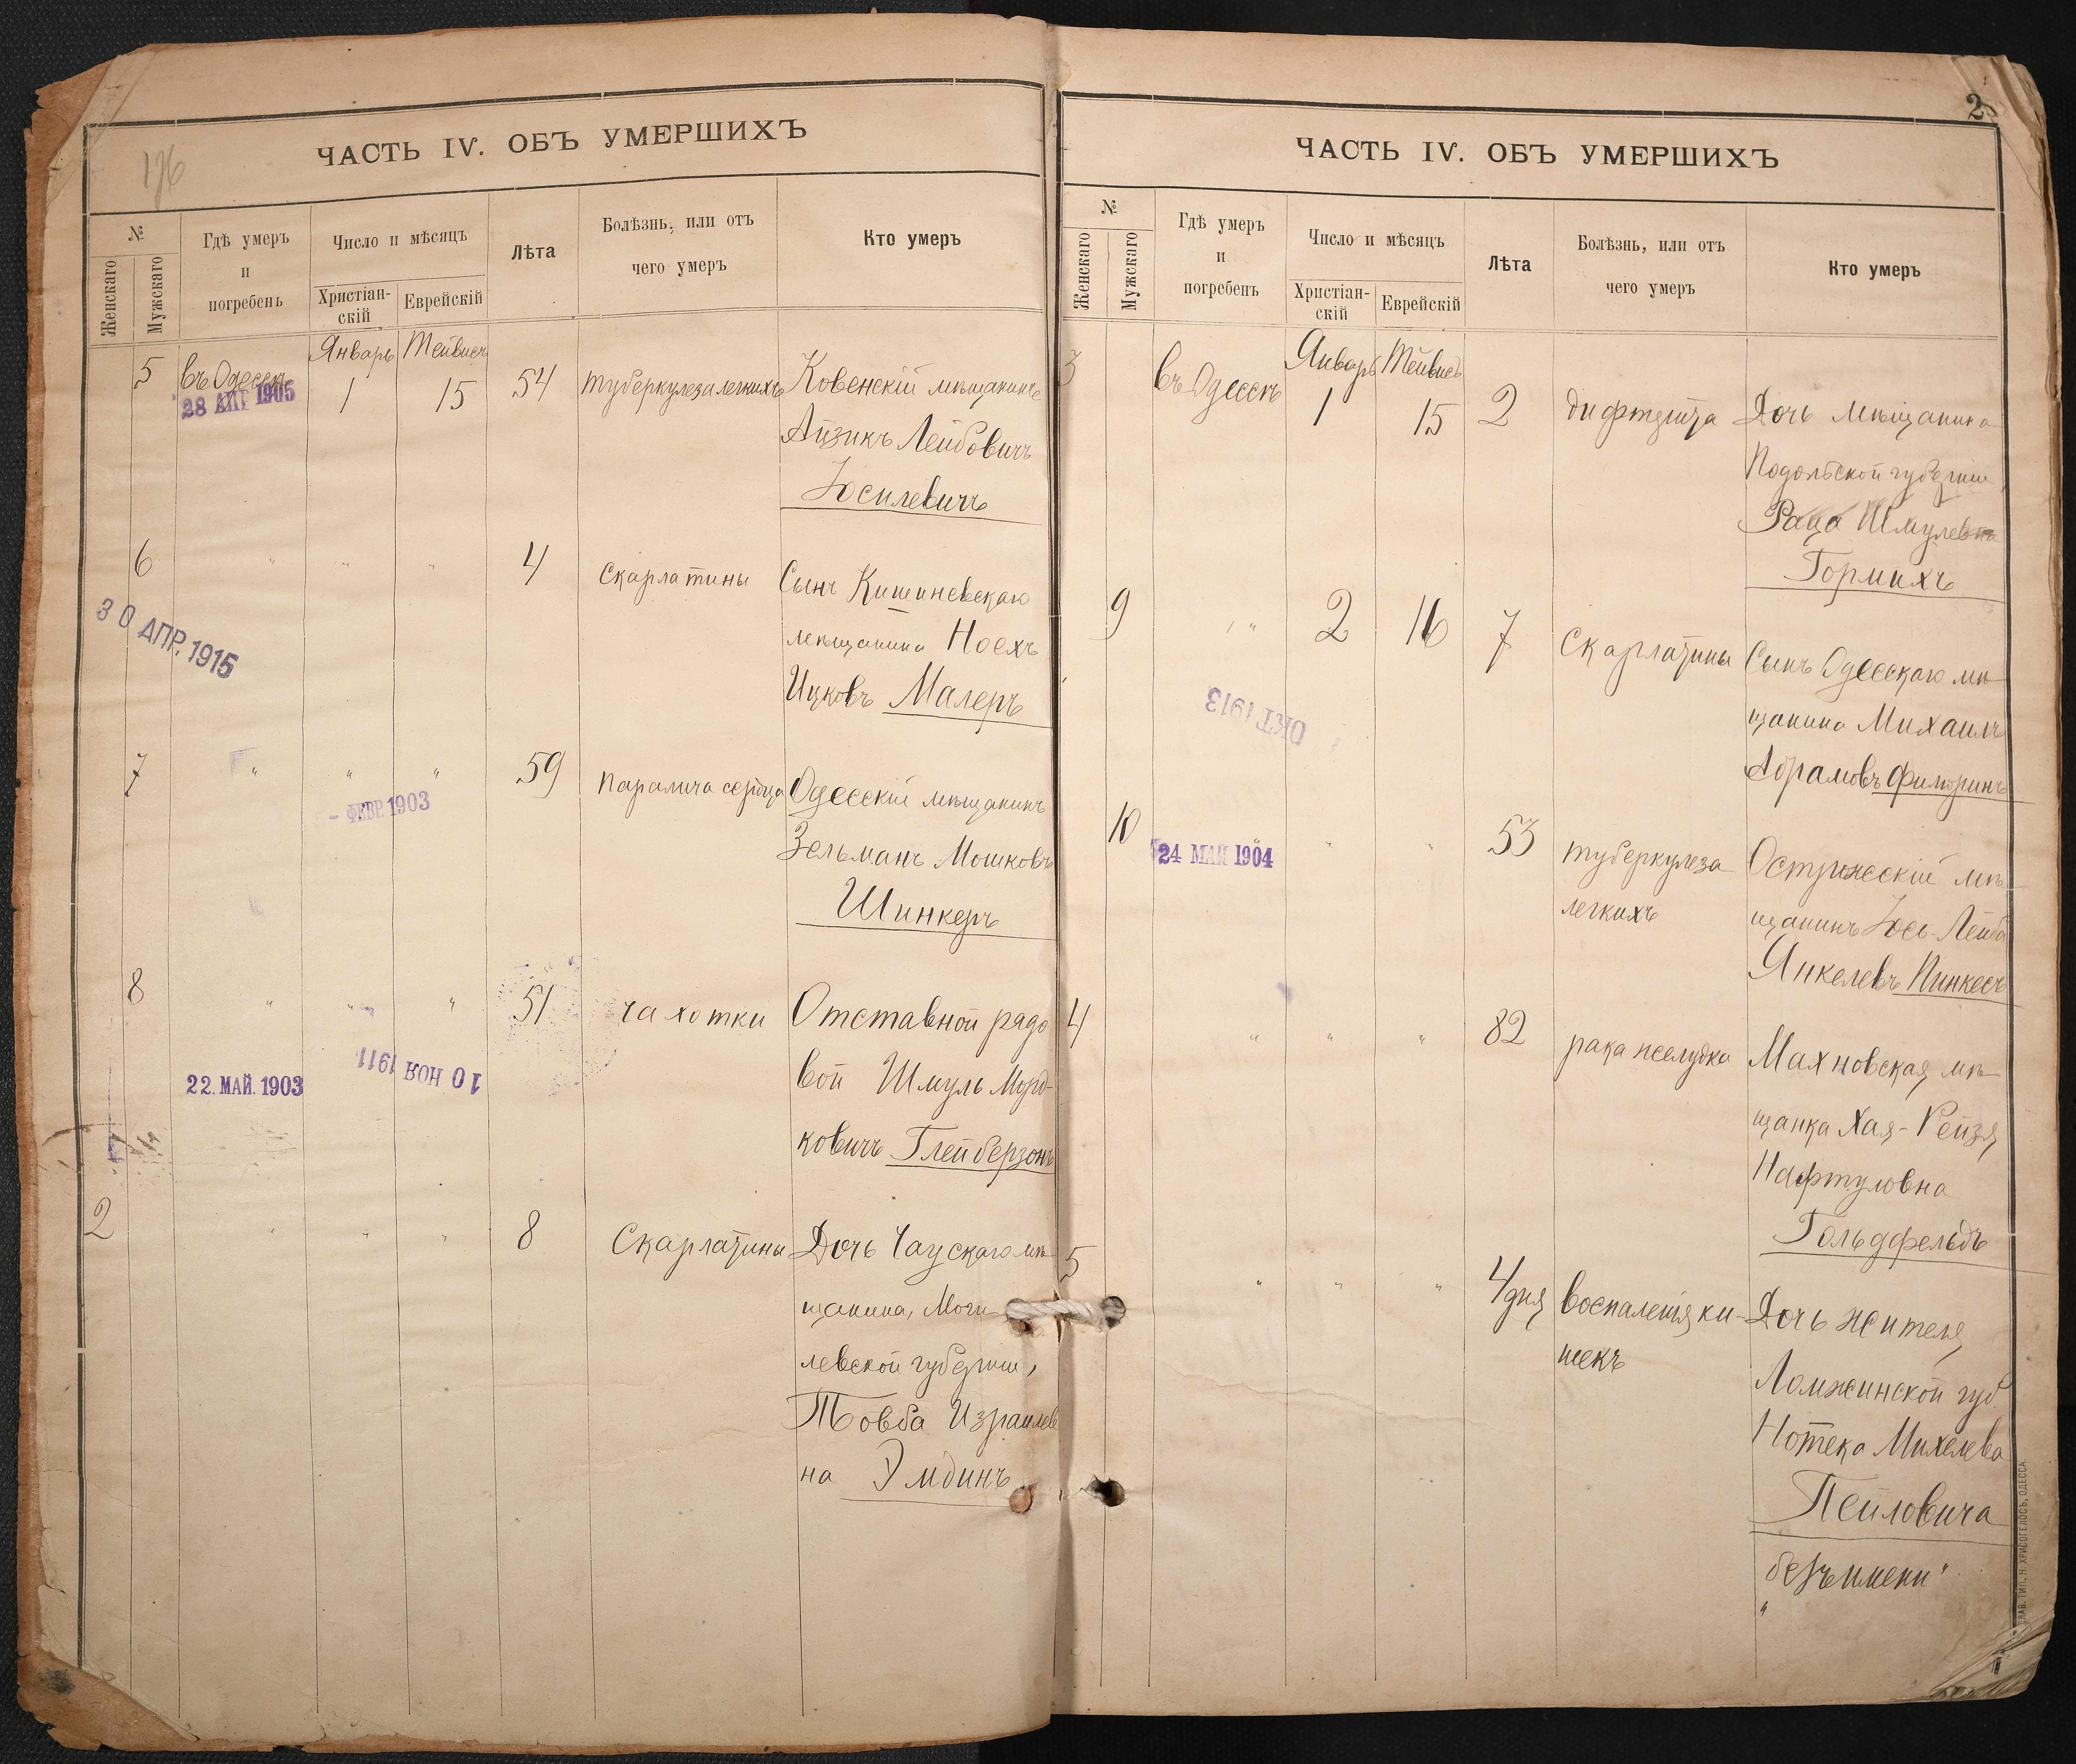 176
ЧАСТЬ IV. ОБЪ УМЕРШИХЪ
№
Женскаго
Мужскаго
Гдѣ умеръ
и
погребенъ
Число и мѣсяцъ
Христіан-
скій
Еврейскій
Лѣта
Болѣзнь, или отъ
чего умеръ
Кто умеръ
Январь Тейвисъ
5 въ Одессѣ 1 15 54 туберкулеза легкихъ Ковенскій мѣщанинъ
28 АПР 1905
Айзикъ Лейбовичъ
Іосилевичъ
6 " " " 4 Скарлатины Сынъ Кишиневскаго
мѣщанина Ноехъ
Ицковъ Малеръ
30 АПР. 1915
7 " " " 59 паралича сердца Одесскій мѣщанинъ
- ФЕВР. 1903
Зельманъ Мошковъ
Шинкеръ
8 " " " 51 чахотки Отставной рядо
вой Шмуль Морд-
ковичъ Глейберзонъ
22. МАЙ. 1903
10 НОЯ 1911
2 " " " 8 Скарлатины Дочь Чаускаго мѣ
щанина, Моги-
левской губерніи,
Товба Израилев
на Эмдинъ
2
ЧАСТЬ IV. ОБЪ УМЕРШИХЪ
№
Женскаго
Мужскаго
Гдѣ умеръ
и
погребенъ
Число и мѣсяцъ
Христіан-
скій
Еврейскій
Лѣта
Болѣзнь, или отъ
чего умеръ
Кто умеръ
Январь Тейвисъ
3 въ Одессѣ 1 15 2 дифтерита Дочь мѣщанина
Подольской губерніи
Шмулевна
Гормихъ
9 " 2 16 7 Скарлатины Сынъ Одесскаго мѣ
щанина Михаилъ
Абрамовъ
ОКТ 1913
10 " " 53 туберкулеза
легкихъ
Острожскій мѣ
щанинъ Іось-Лейба
Янкелевъ Пинкесъ
24 МАЙ 1904
4 " " " 82 рака желудка Махновская мѣ
щанка Хая-Рейзя
Нафтуловна
Гольдфельдъ
5 " " " 4 дня воспаленія ки-
шекъ
Дочь жителя
Ломжинской губ.
Нотека Михелева
Пейловича
"безъ имени"
СЛАВ. ТИП. Н. ХРИСОГЕЛОСЪ, ОДЕССА.